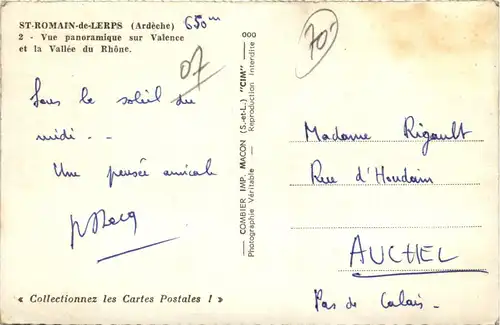 ST-ROMAIN-de-LERPS (Ardèche) 650m
2 - Vue panoramique sur Valence
et la Vallée du Rhône.
07
Sous le soleil du
midi - -
Une pensée amicale
« Collectionnez les Cartes Postales ! »
000
— COMBIER IMP. MACON (S.-et-L.) "CIM" —
Photographie Véritable — Reproduction interdite
70-
Madame Rigault
Rue d'Houdain
AUCHEL
Pas de Calais -